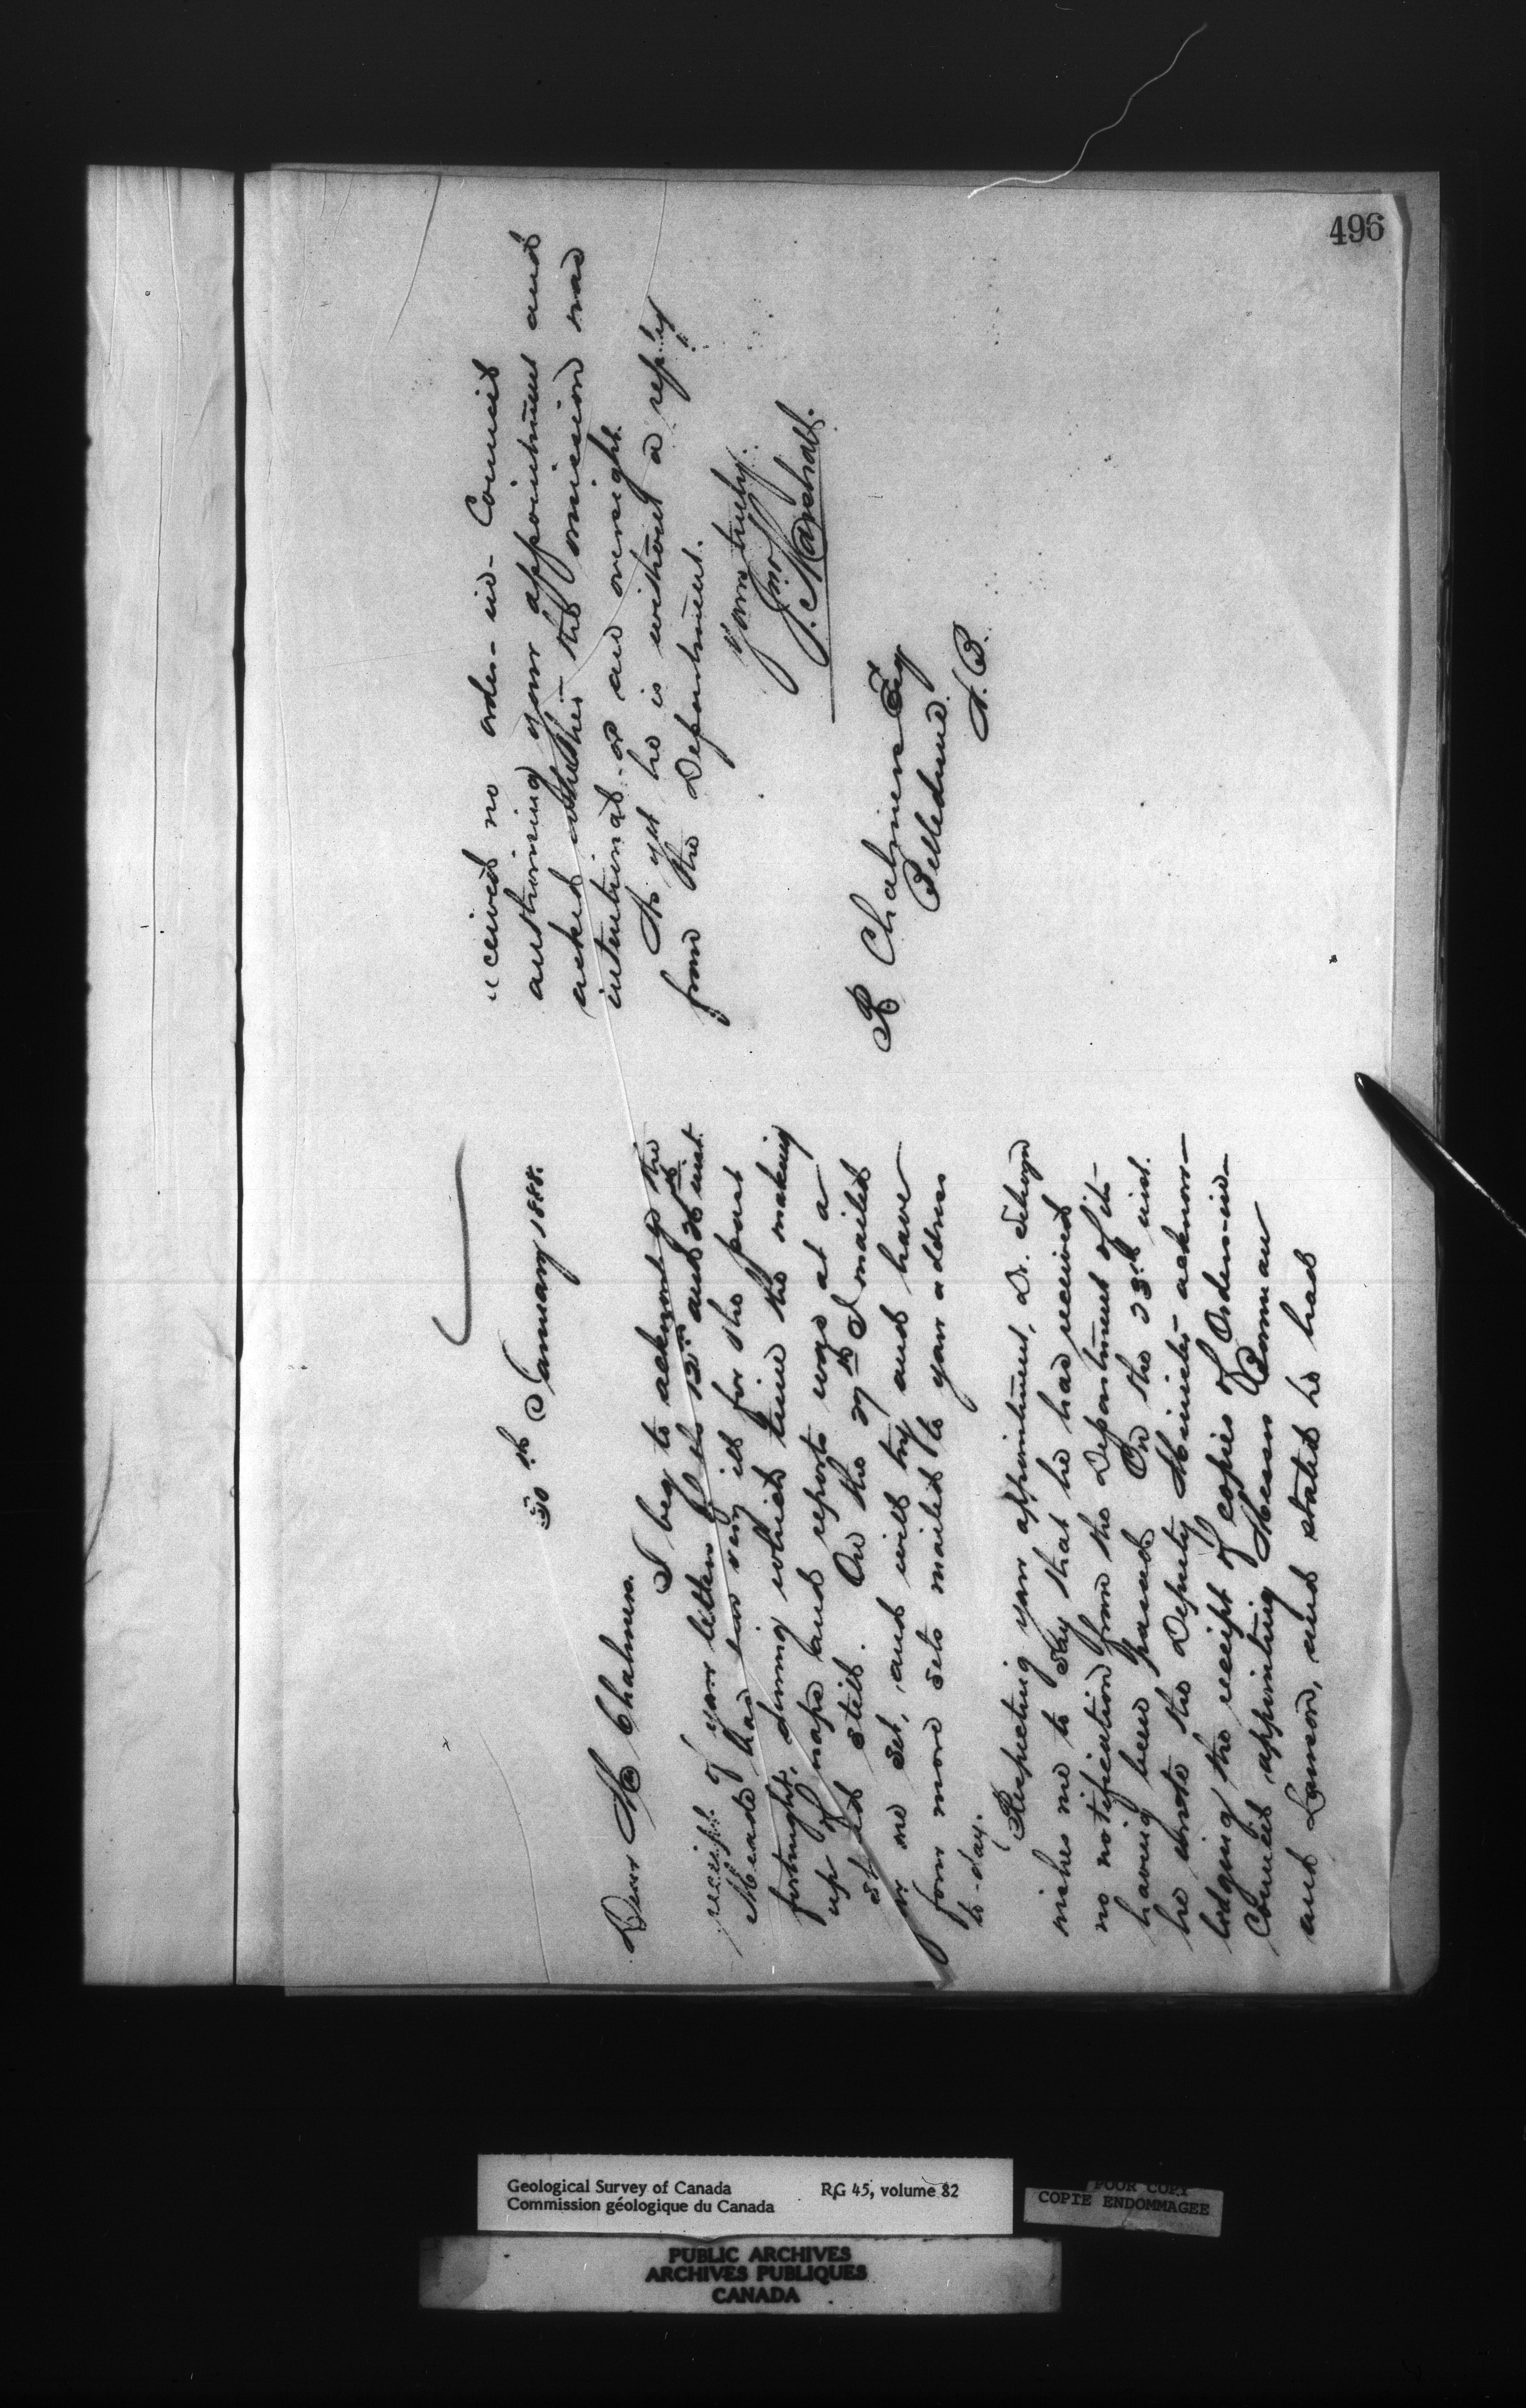 496
30th January 1888.
Dear Mr Chalmers.
I beg to acknowl'g the
receipt of your letters of the 13th and 26th inst.
Meade has been very ill for the past
fortnight, during which time the making
up of maps and reports was at a
stand still. On the 27th I mailed
one set, and will try and have
four more sets mailed to your address
to-day.
Respecting your appointment, Dr. Selwyn
wishes me to say that he has received
no notification from the Department of its
having been passed. On the 23rd inst.
he wrote the Deputy Minister acknow-
ledging the receipt of copies of Orders-in-
Council appointing Messrs Bowman
and Lawson, and stated he had
received no order-in-Council
authorizing your appointment and
asked whether the omission was
intentional or an oversight.
As yet he is without a reply
from the Department.
Yours truly.
Jno
J. Marshall.
R Chalmers Esq
Belledune
N.B.
Geological Survey of Canada RG 45, volume 82
Commission géologique du Canada
POOR COPY
COPIE ENDOMMAGEE
PUBLIC ARCHIVES
ARCHIVES PUBLIQUES
CANADA